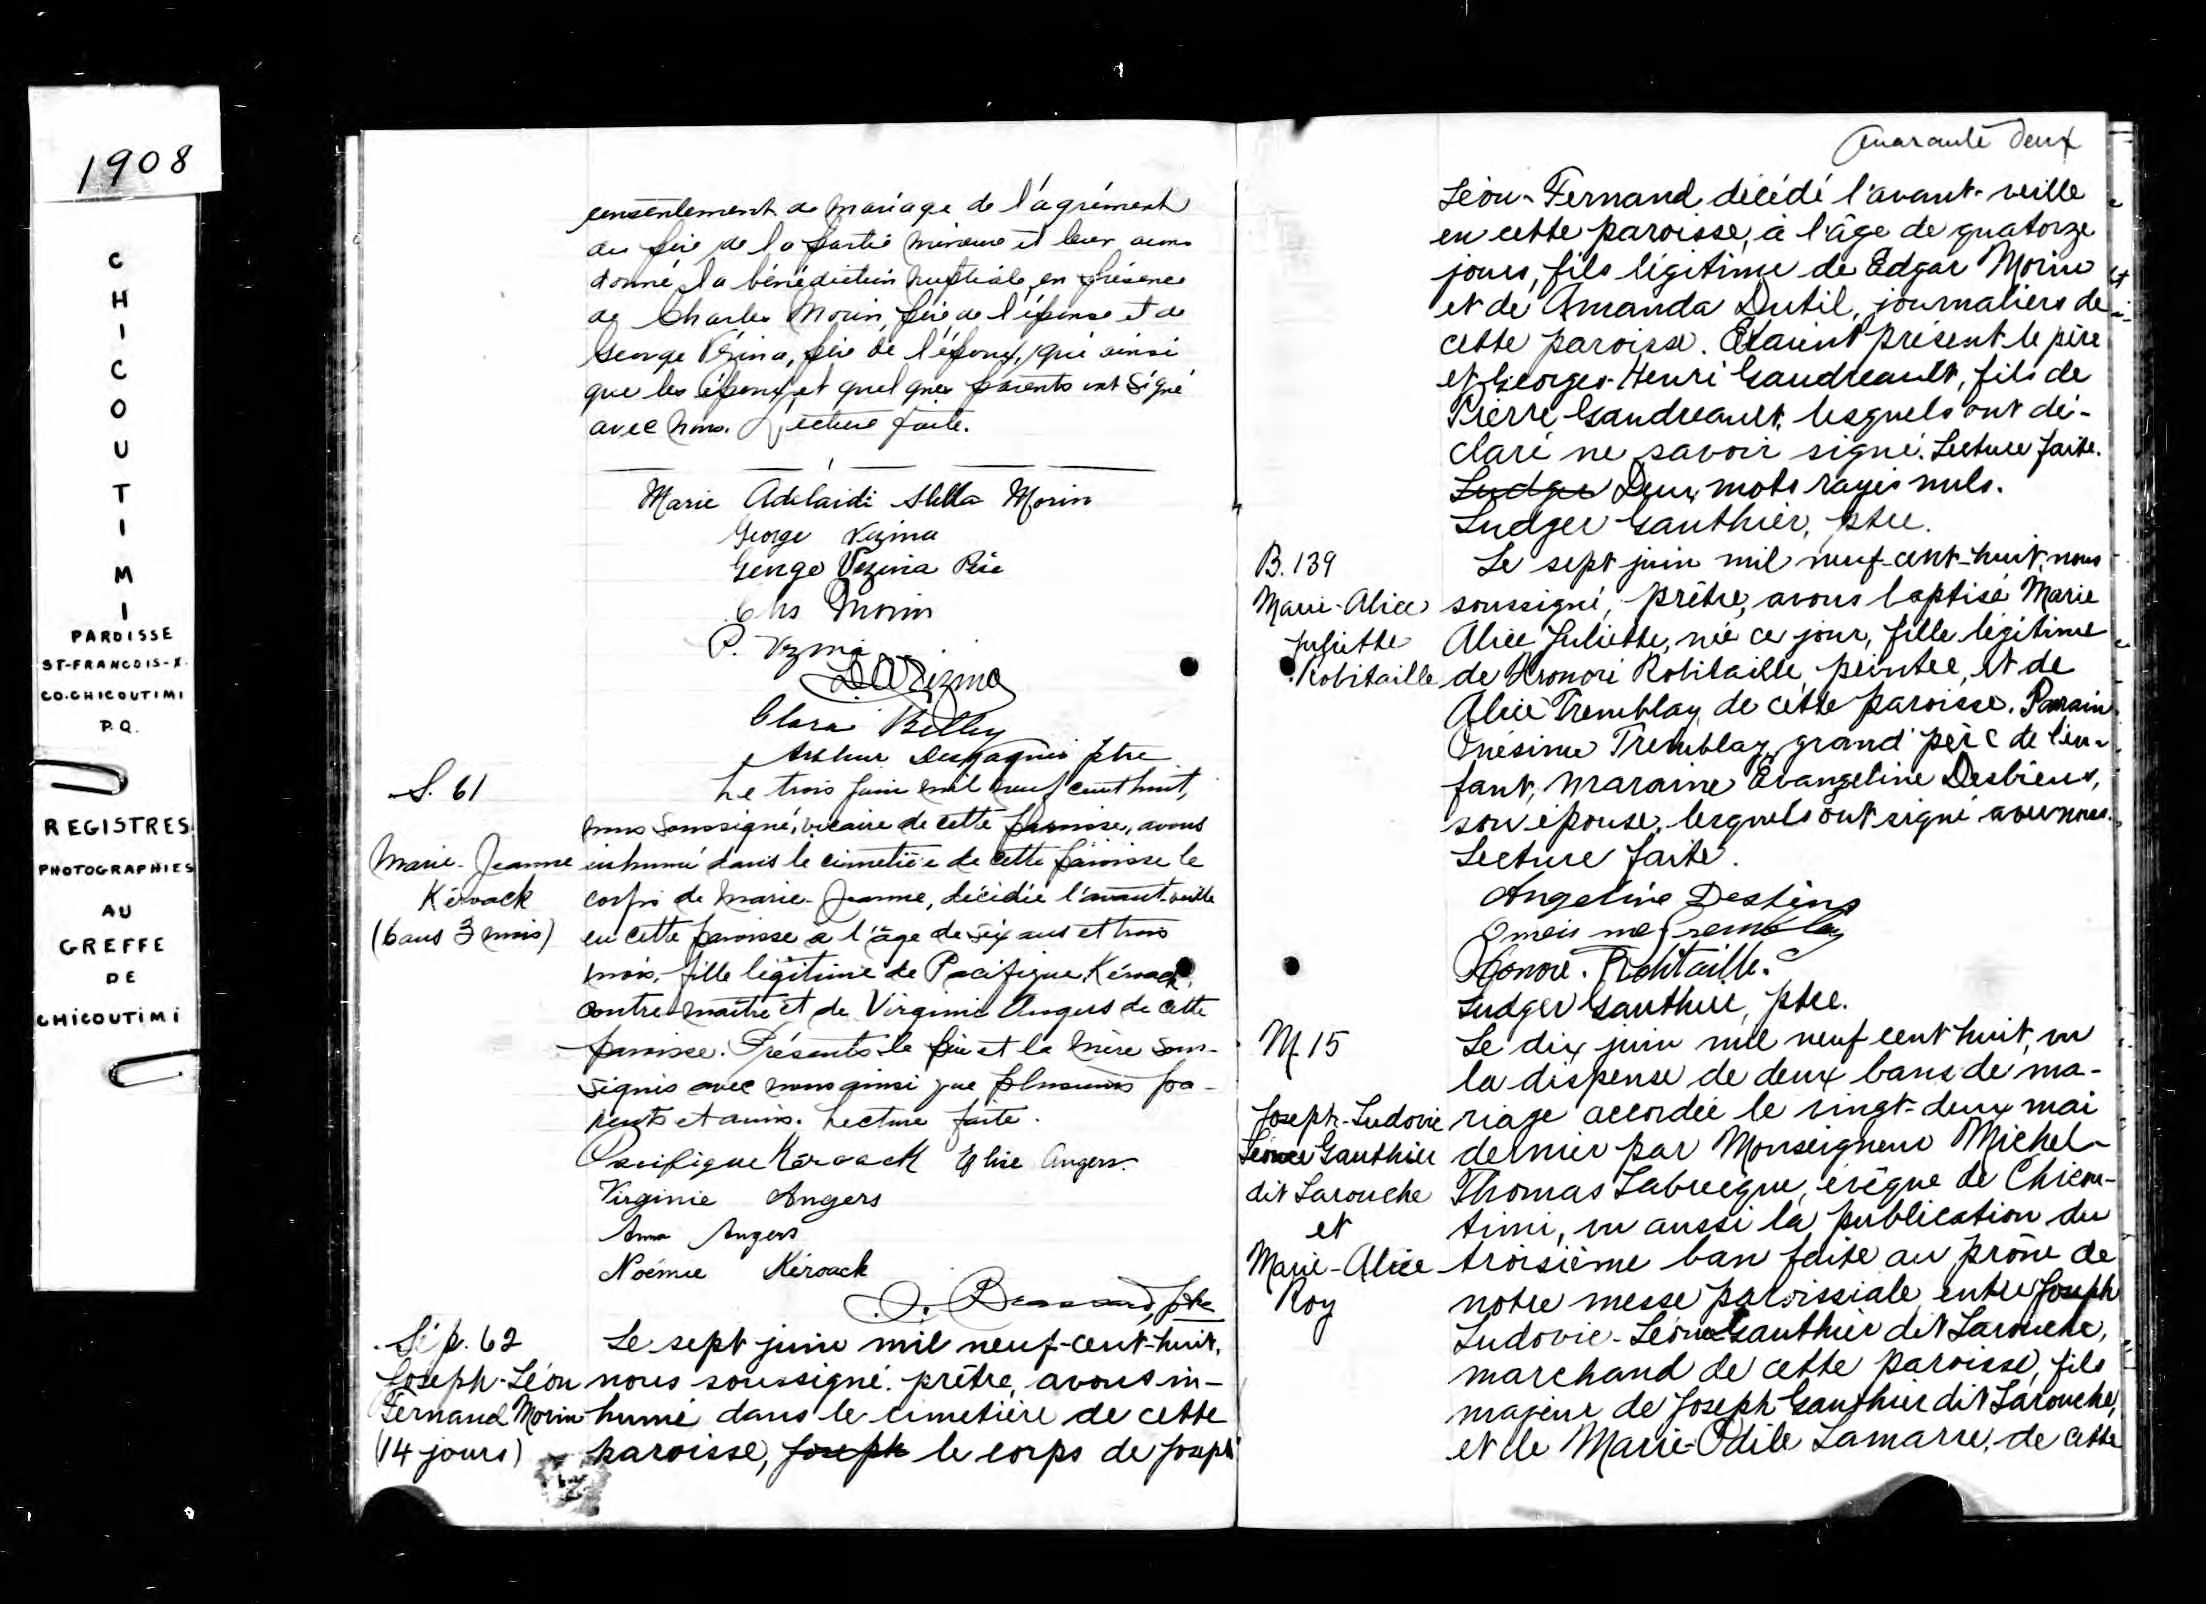 1908
CHICOUTIMI
PAROISSE
ST-FRANCOIS-X.
CO.CHICOUTIMI
P.Q.
REGISTRES
PHOTOGRAPHIES
AU
GREFFE
DE
CHICOUTIMI
consentement de mariage de l'agrément
du père de la partie mineure et leur avons
donné la bénédiction nuptiale en présence
de Charles Morin, père de l'épouse et de
George Vézina, père de l'époux, qui ainsi
que les époux et quelques parents ont signé
avec nous. Lecture faite.
Marie Adélaide Stella Morin
George Vezina
George Vezina Père
Chs Morin
P. Vezina
Vezina
Clara Belley
Arthur Desgagnés ptre
S. 61
Marie-Jeanne
Kéroack
(6 ans 3 mois)
Le trois juin mil neuf cent huit,
nous soussigné, vicaire de cette paroisse, avons
inhumé dans le cimetière de cette paroisse le
corps de Marie-Jeanne, décédée l'avant-veille
en cette paroisse à l'âge de six ans et trois
mois, fille légitime de Pacifique Kéroack,
contre-maître et de Virginie Angers de cette
paroisse. Présents le père et la mère sous-
signés avec nous ainsi que plusieurs pa-
rents et amis. Lecture faite.
Pacifique Kéroack Elise Angers.
Virginie Angers
Anna Angers
Noémie Kéroack
ptre
Sép. 62
Joseph-Léon
Fernand Morin
(14 jours)
Le sept juin mil neuf-cent-huit,
nous soussigné, prêtre, avons in-
humé dans le cimetière de cette
paroisse, Joseph le corps de Joseph
Quarante deux
Léon-Fernand décédé l'avant-veille
en cette paroisse, à l'âge de quatorze
jours, fils légitime de Edgar Morin
et de Amanda Dutil, journaliers de
cette paroisse. Etaient présent le père
et Georges-Henri Gaudreault, fils de
Pierre Gaudreault, lesquels ont dé-
claré ne savoir signé. Lecture faite.
Ludger Deux mots rayés nuls.
Ludger Gauthier, ptre.
B. 139
Marie-Alice
Juliette
Robitaille
Le sept juin mil neuf-cent-huit, nous
soussigné, prêtre, avons baptisé Marie
Alice Juliette, née ce jour, fille légitime
de Honoré Robitaille, peintre, et de
Alice Tremblay de cette paroisse. Parrain
Onésime Tremblay, grand père de l'en-
fant, Maraine Evangeline Desbiens,
son épouse, lesquels ont signé avec nous.
Lecture faite.
Angeline Desbins
Tremblay
Honore. Robitaille.
Ludger Gauthier, ptre.
M. 15
Joseph-Ludovic
Léonce Gauthier
dit Larouche
et
Marie-Alice
Roy
Le dix juin mil neuf cent huit, vu
la dispense de deux bans de ma-
riage accordée le vingt-deux mai
dernier par Monseigneur Michel-
Thomas Labrecque, évêque de Chicou-
timi, vu aussi la publication du
troisième ban faite au prône de
notre messe paroissiale entre Joseph
Ludovic-Léonce Gauthier dit Larouche,
marchand de cette paroisse, fils
majeur de Joseph Gauthier dit Larouche,
et de Marie-Odile Lamarre, de cette